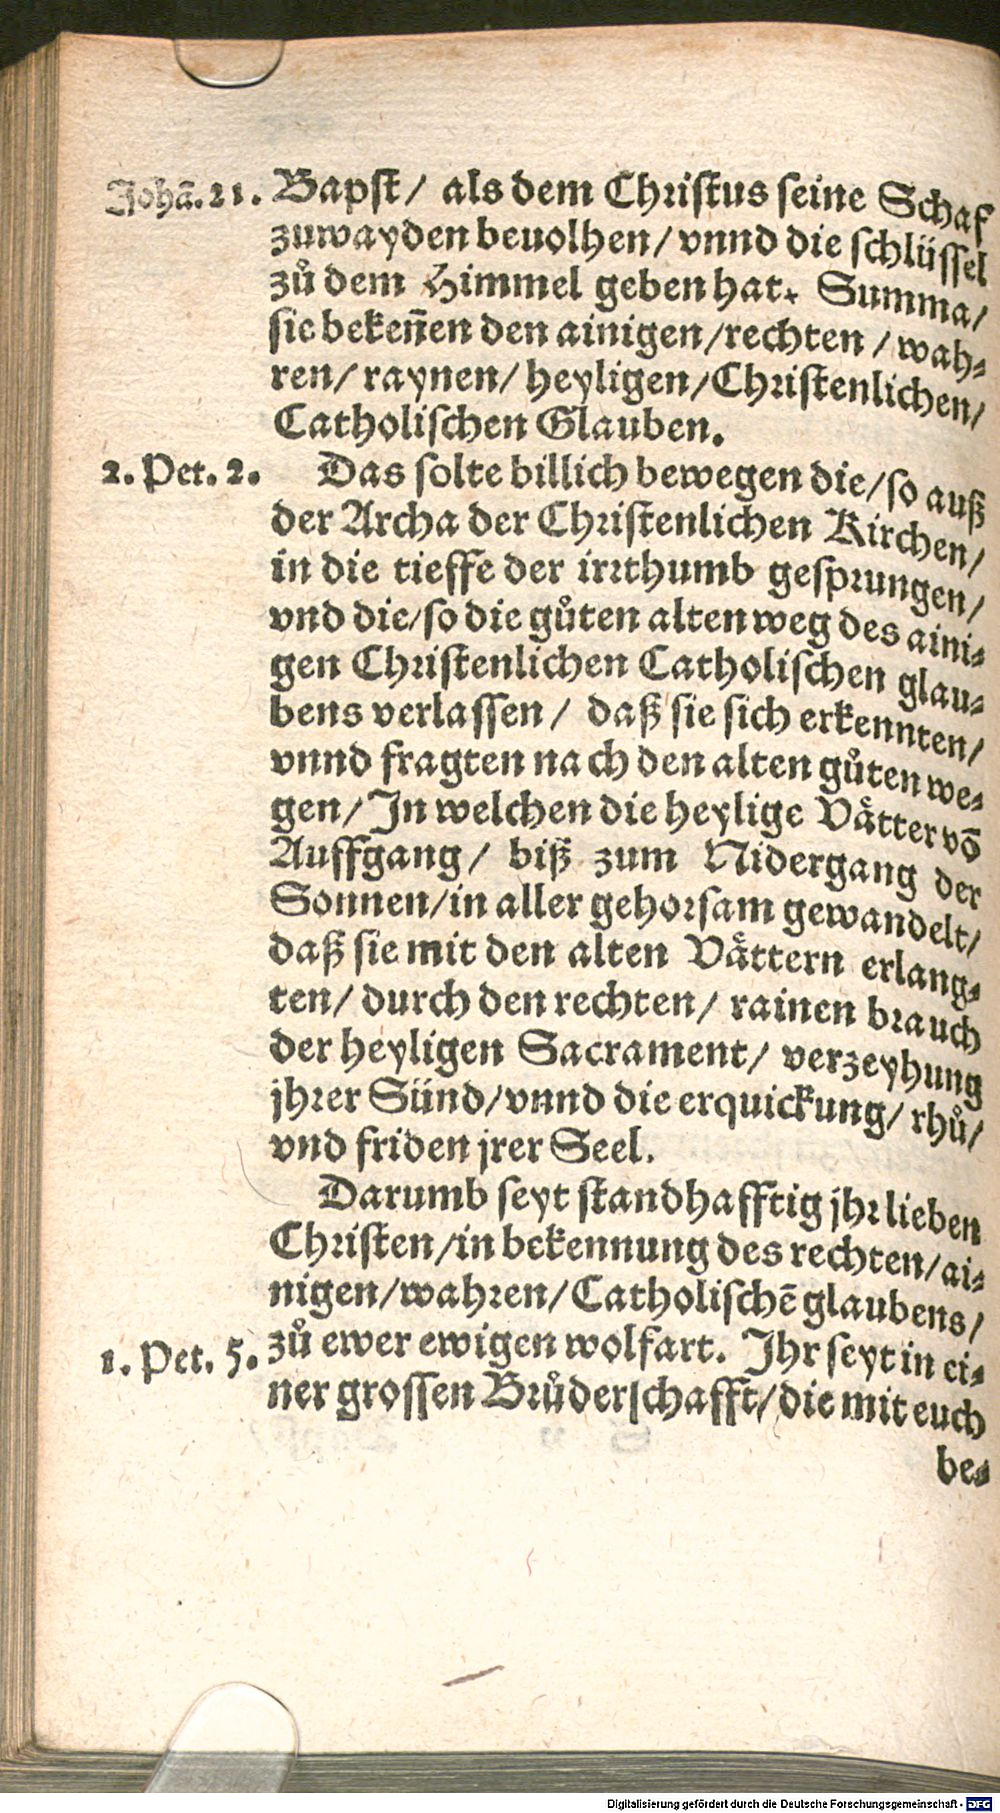 Johā. 21. Bapst/ als dem Christus seine Schaf
zuwayden beuolhen/ vnnd die schlüssel
zů dem Himmel geben hat. Summa/
sie bekeñen den ainigen/rechten / wah-
ren/ raynen/ heyligen/Christenlichen/
Catholischen Glauben.
2. Pet. 2. Das solte billich bewegen die/so auß
der Archa der Christenlichen Kirchen/
in die tieffe der irrthumb gesprungen/
vnd die/so die gůten alten weg des aini-
gen Christenlichen Catholischen glau-
bens verlassen/ daß sie sich erkennten/
vnnd fragten nach den alten gůten we-
gen/ In welchen die heylige Vätter võ
Auffgang/ biß zum Nidergang der
Sonnen/in aller gehorsam gewandelt/
daß sie mit den alten Vättern erlang-
ten/ durch den rechten/ rainen brauch
der heyligen Sacrament/ verzeyhung
jhrer Sünd/vnnd die erquickung/ rhů/
vnd friden jrer Seel.
Darumb seyt standhafftig jhr lieben
Christen/in bekennung des rechten/ai-
nigen/wahren/Catholischē glaubens/
1. Pet. 5. zů ewer ewigen wolfart. Ihr seyt in ei-
ner grossen Brůderschafft/die mit euch
be-
Digitalisierung gefördert durch die Deutsche Forschungsgemeinschaft - DFG